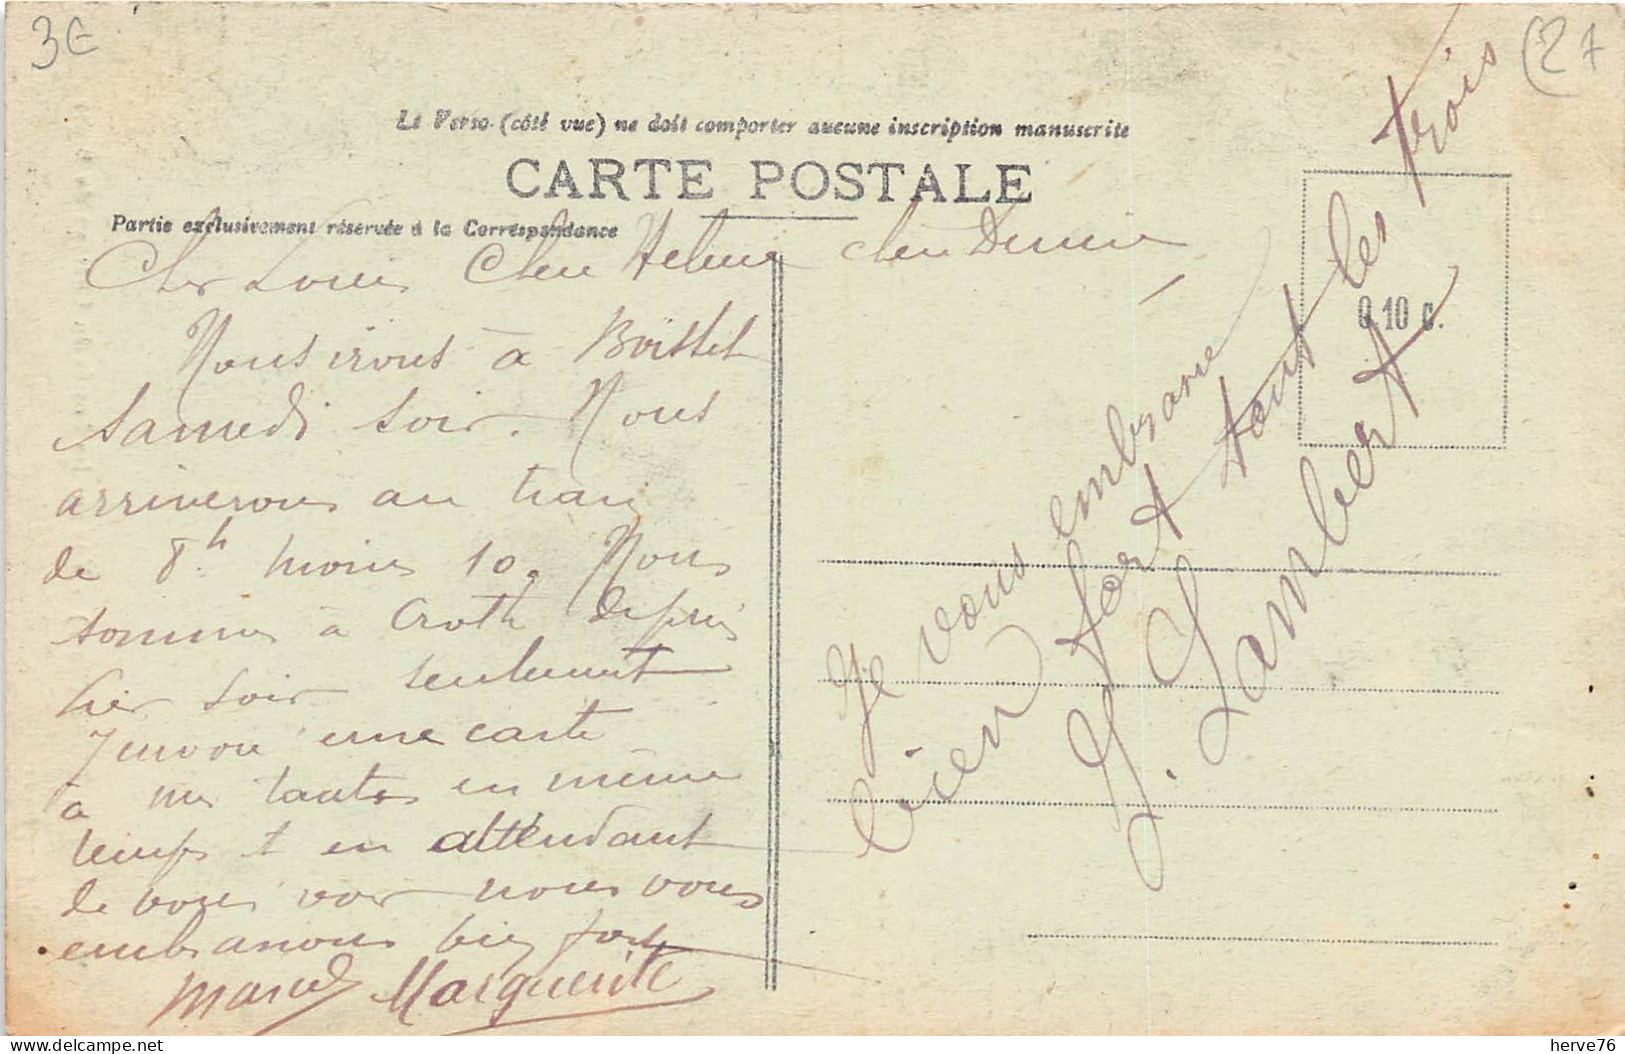 3€
(27
Le Verso (côté vue) ne doit comporter aucune inscription manuscrite
CARTE POSTALE
Partie exclusivement réservée à la Correspondance
0,10 c.
Cher Louis Chere Helene chere
Nous irons à Boisset
Samedi soir. Nous
arriverons au train
de 8h. moins 10. Nous
sommes à Croth depuis
hier soir seulement
J'envoie une carte
à mes tantes en même
temps & en attendant
de vous voir nous vous
embrassons bien fort
Marcel Marguerite
Je vous embrasse
bien fort tout les trois
G. Lambert
delcampe.net
herve76